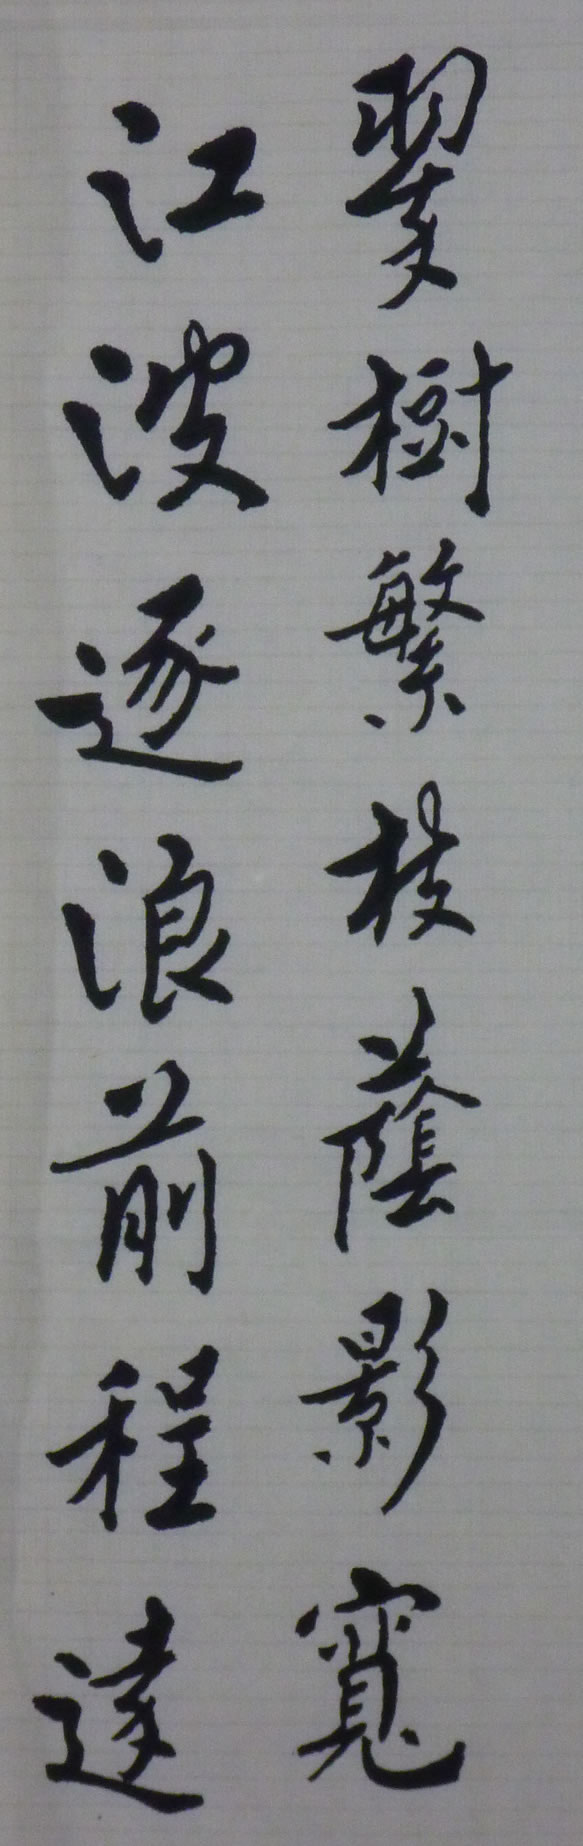 翠樹繁枝蔭影寬
江波逐浪前程達